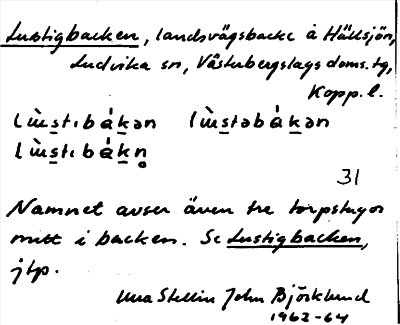 Lustigbacken, landsvägsbacke å Hällsjön,
Ludvika sn, Västerbergslags doms. tg,
Kopp. l.
lɯ̀stıbákən lɯ̀stəbákən
lɯ̀stıbákn̥
31
Namnet avser även tre torpstugor
mitt i backen. Se Lustigbacken,
jlp.
Una Stellin John Björklund
1962-64